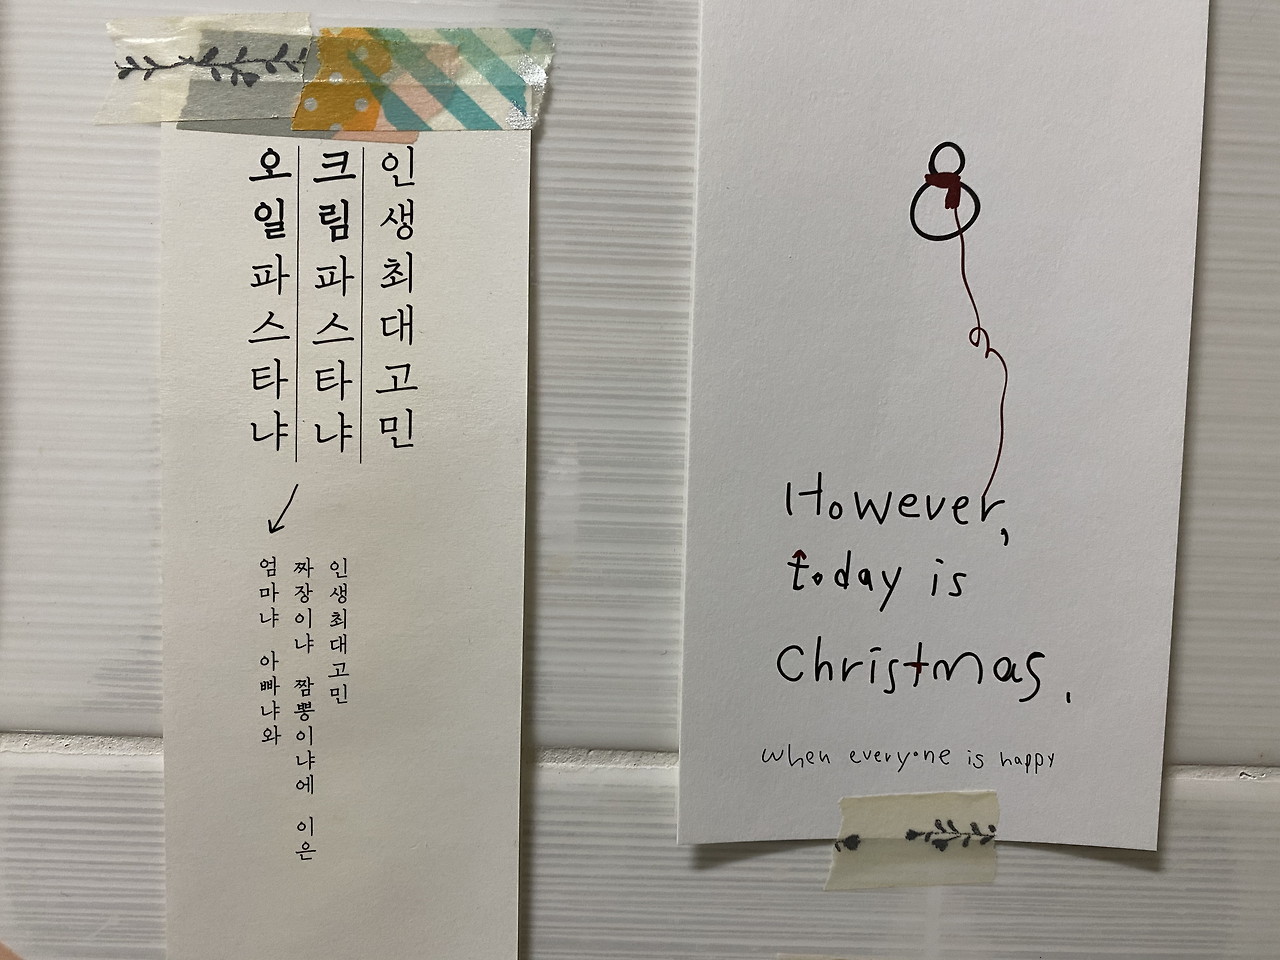 인생최대고민
크림파스타냐
오일파스타냐
인생최대고민
짜장이냐 짬뽕이냐에 이은
엄마냐 아빠냐와
However,
today is
Christmas.
when everyone is happy